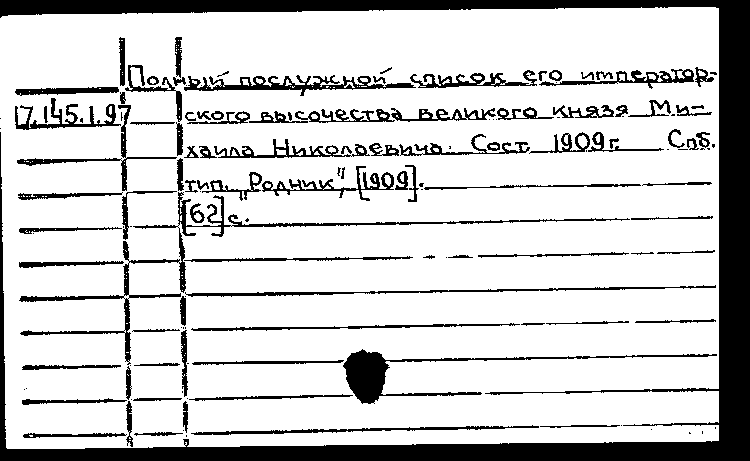 Полный послужной список его император-
17.145.1.97 ского высочества великого князя Ми-
хаила Николаевича. Сост. 1909 г. Спб.
тип. "Родник", [1909].
[62] с.